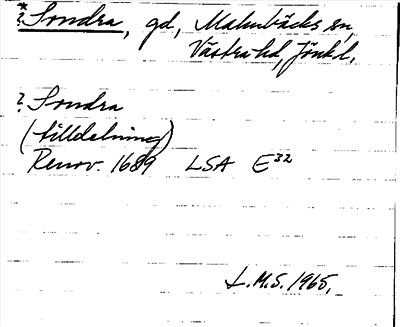 *
? Sondra, gd, Malmbäcks sn,
Västra hd, Jönk.l.
? Sondra
(tilldelning)
Renov. 1689 LSA E32
L.M.S. 1965.